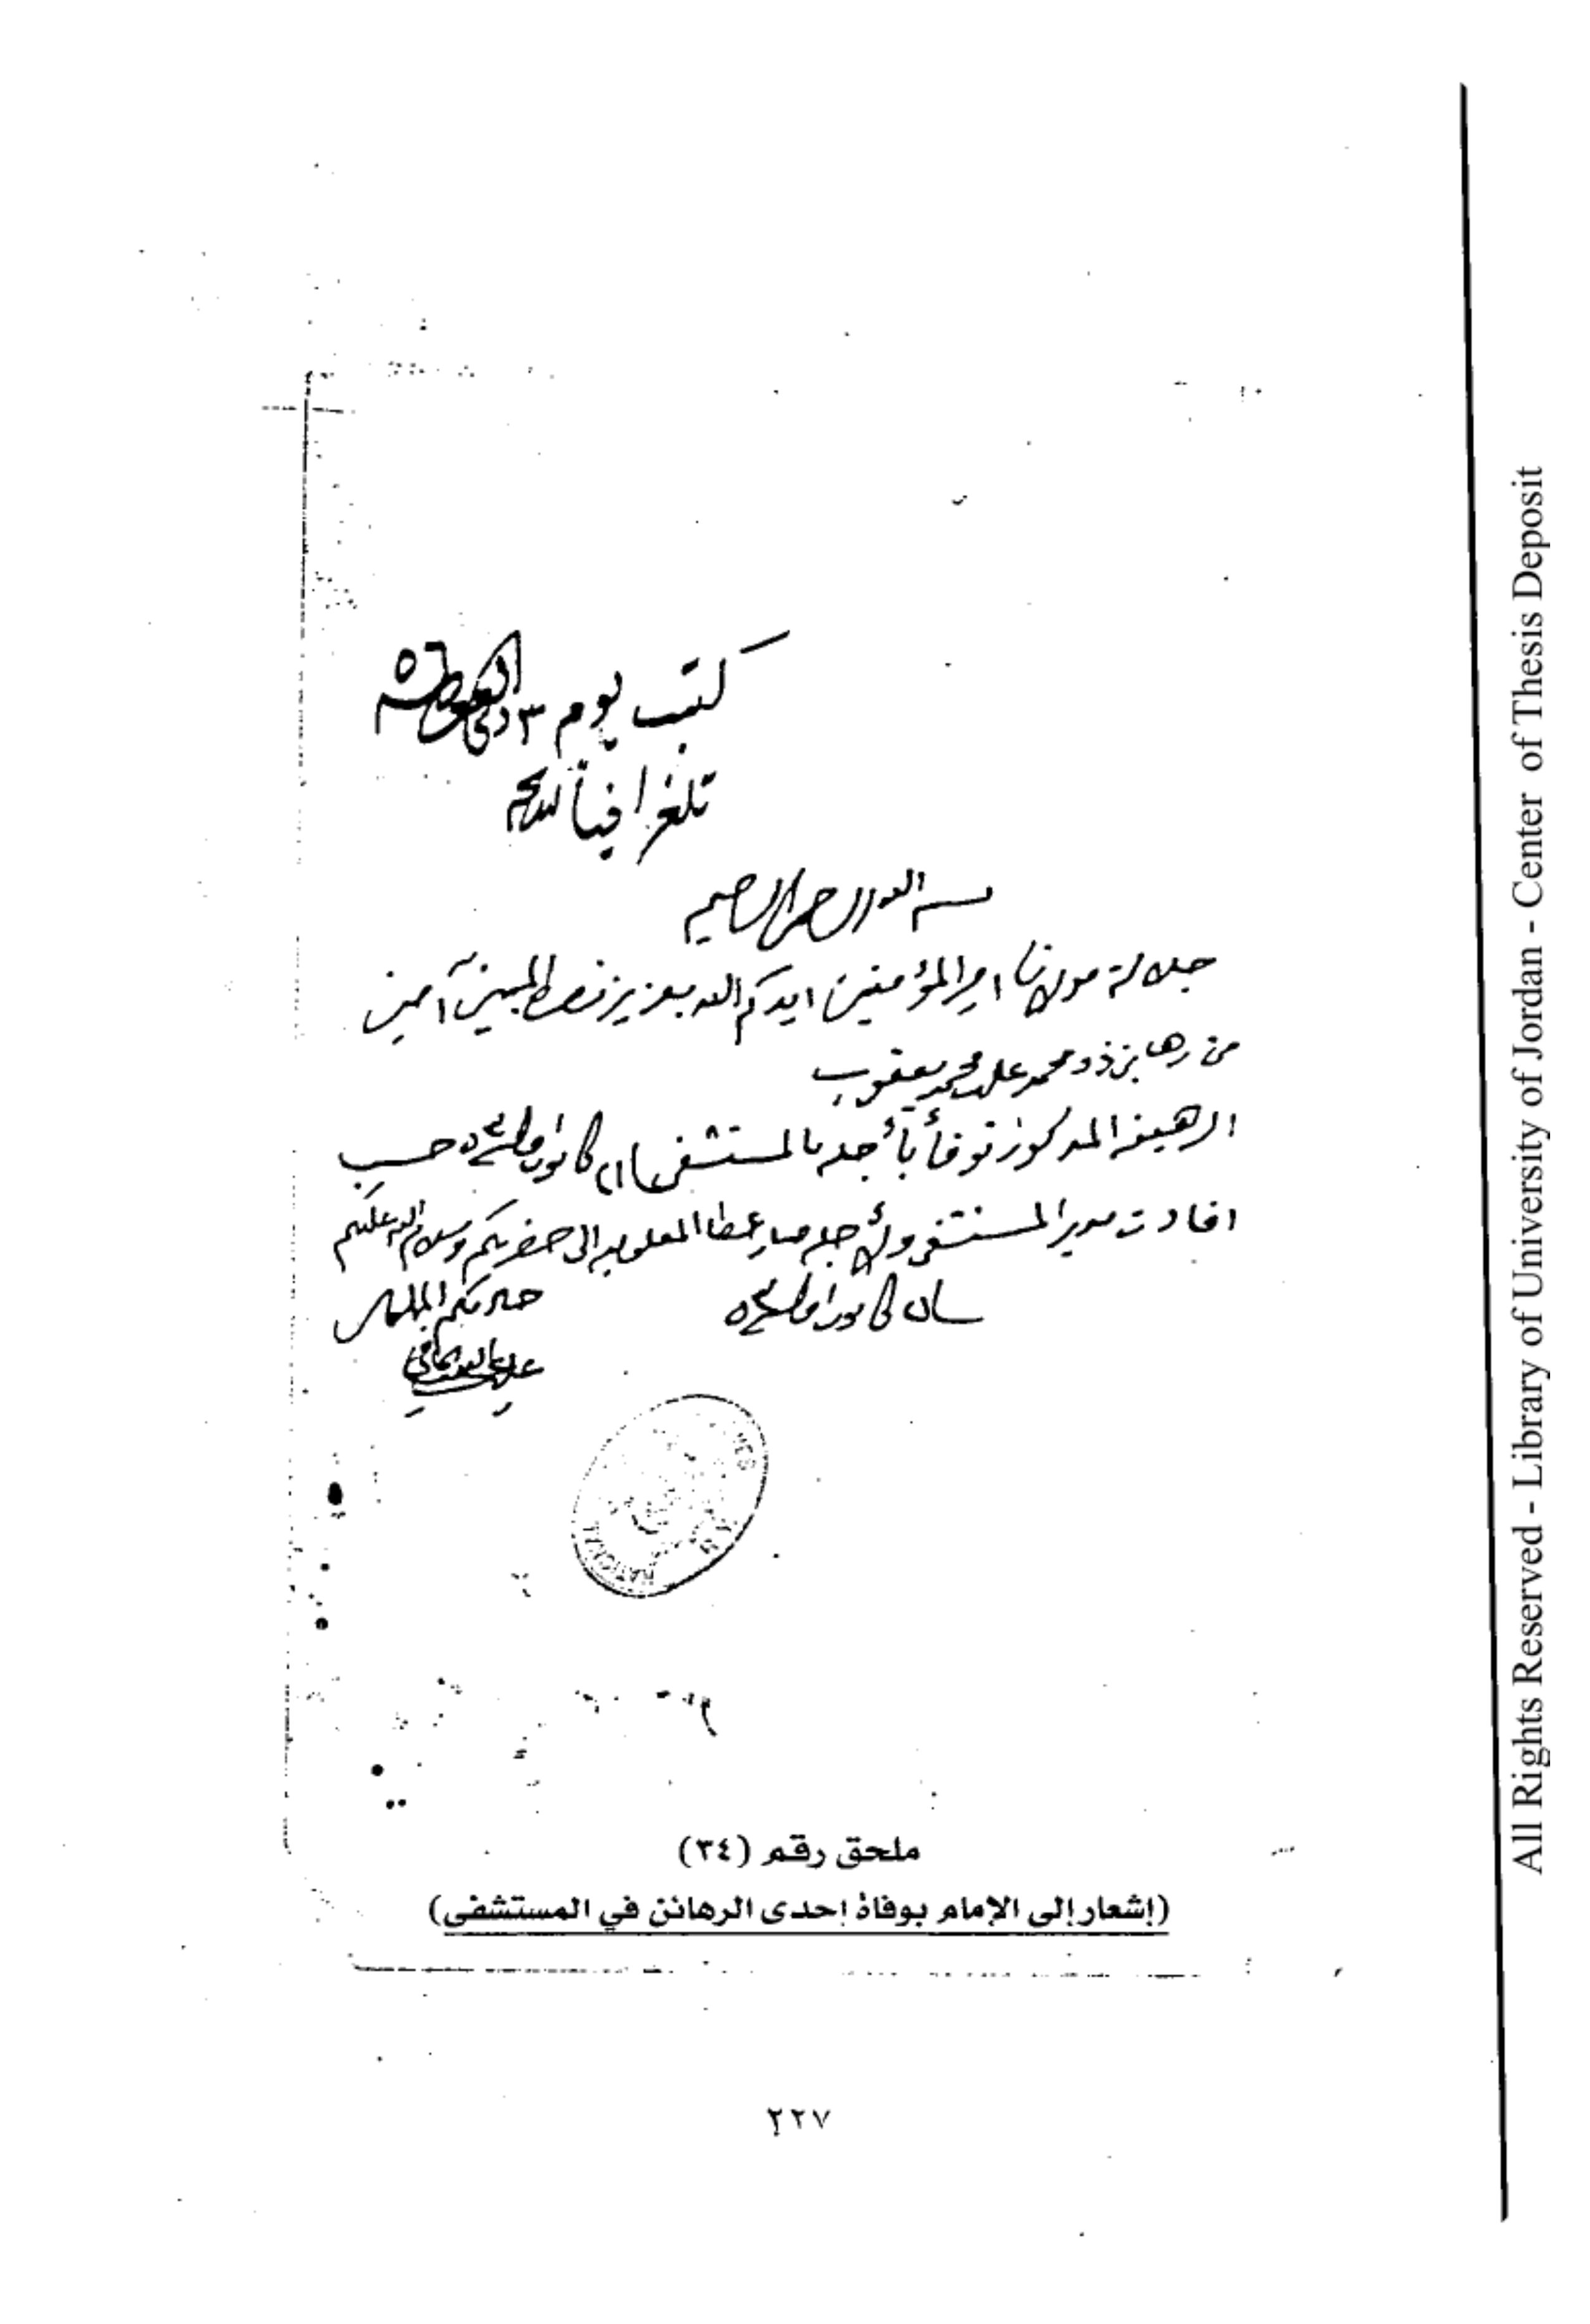 كتب يوم ٣
تلغرافياً
بسم الله الرحمن الرحيم
جلالة مولانا امير المؤمنين ايدكم الله بعزيز نصره المبين آمين
من رهاين ذو محمد علي محمد يعقوب
الرهينة المذكور توفأ بأجله بالمستشفى كانون حسب
افادت مدير المستشفى ولأجله صار عطا المعلوميه الى حضرتكم وسلام الله عليكم
خادمكم
NATIONAL
ملحق رقم (٣٤)
(إشعار إلى الإمام بوفاة إحدى الرهائن في المستشفى)
٢٢٧
All Rights Reserved - Library of University of Jordan - Center of Thesis Deposit